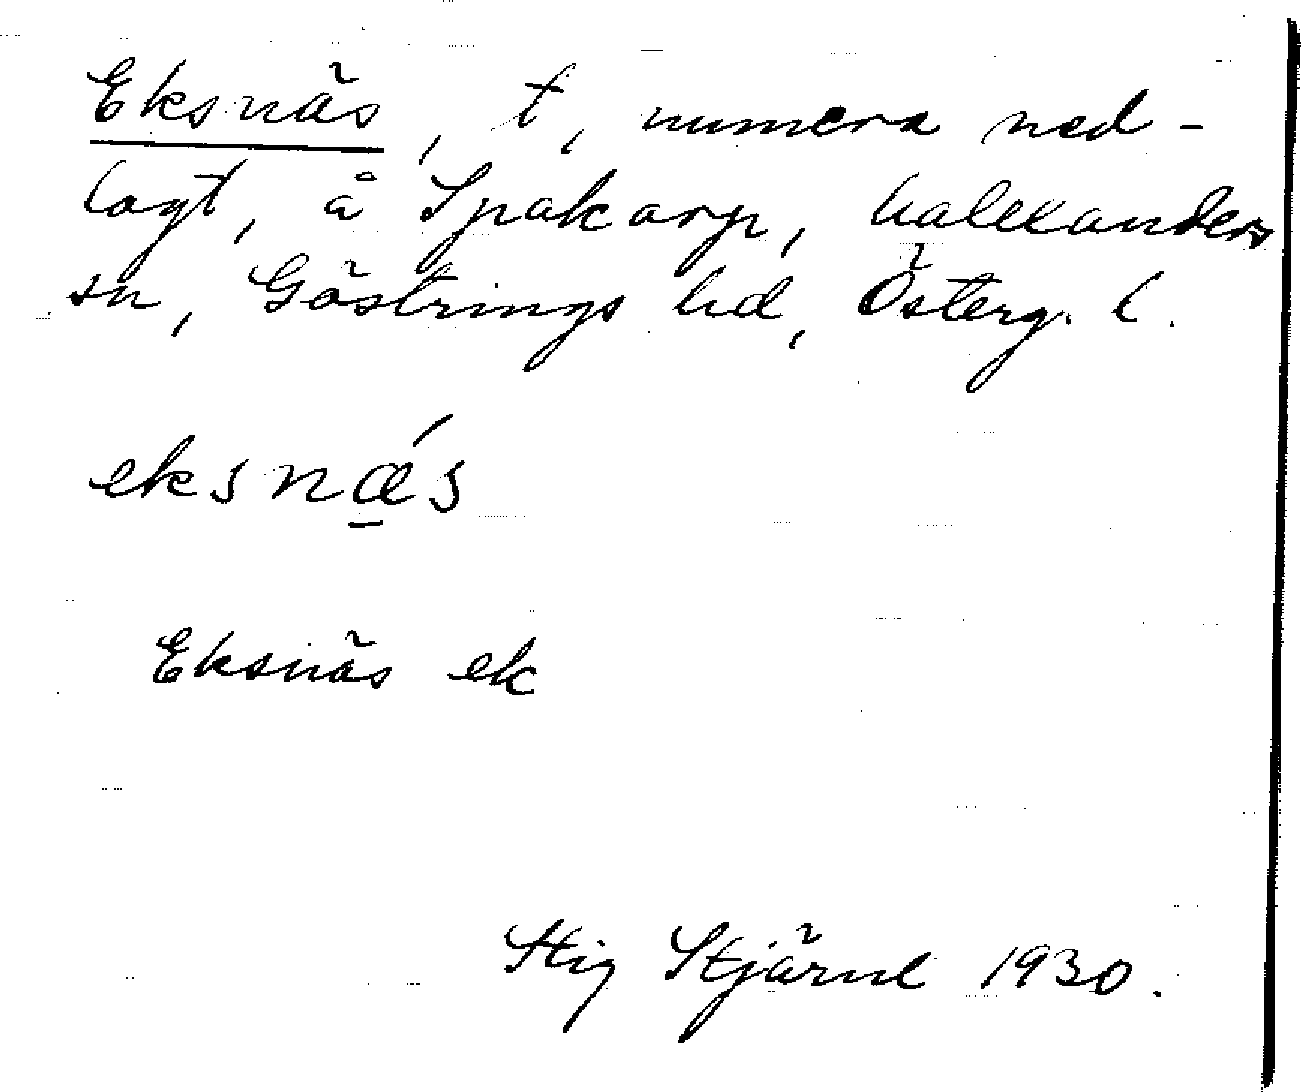 Eksnäs, t, numera ned-
lagt, å Spakarp, Kalexanders
sn, Göstrings hd, Österg. l.
eksnǽs
Eksnäs ek
Stig Stjärne 1930.